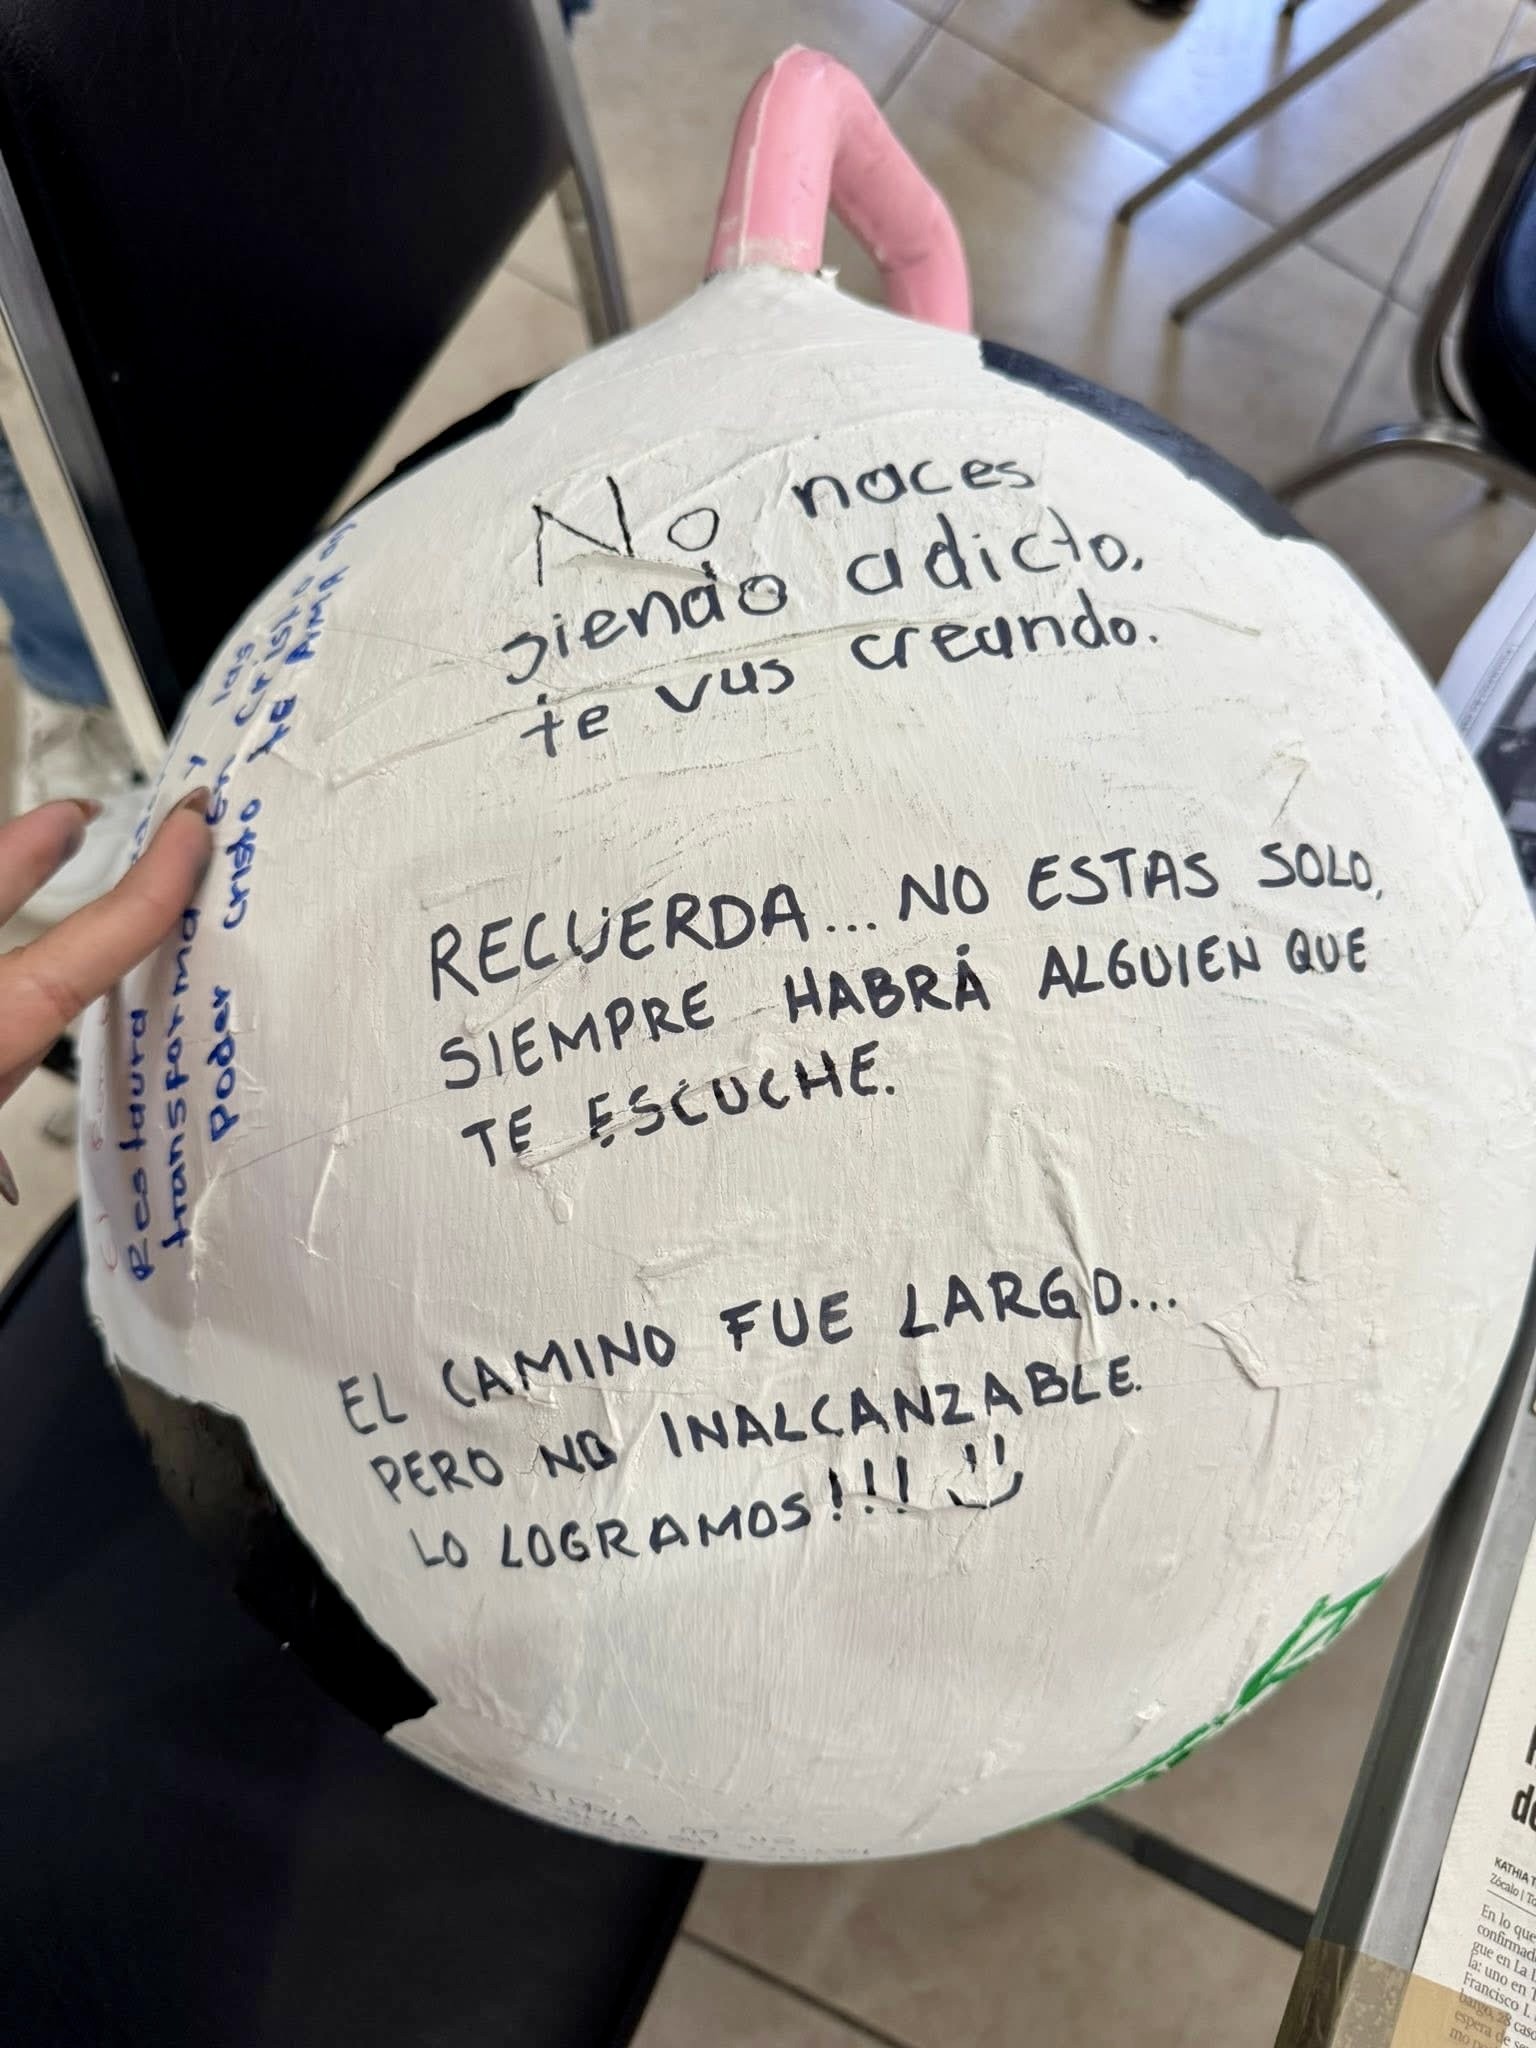 No naces
siendo adicto,
te vas creando.
RECUERDA... NO ESTAS SOLO,
SIEMPRE HABRÁ ALGUIEN QUE
TE ESCUCHE.
EL CAMINO FUE LARGO...
PERO NO INALCANZABLE.
LO LOGRAMOS!!!
Restaura y las
transforma en Cristo
Poder cristo te AMA
KATHIA
Zócalo
En lo que
confirmad
gue en La
la: uno en
Francisco I.
28 caso
espera de